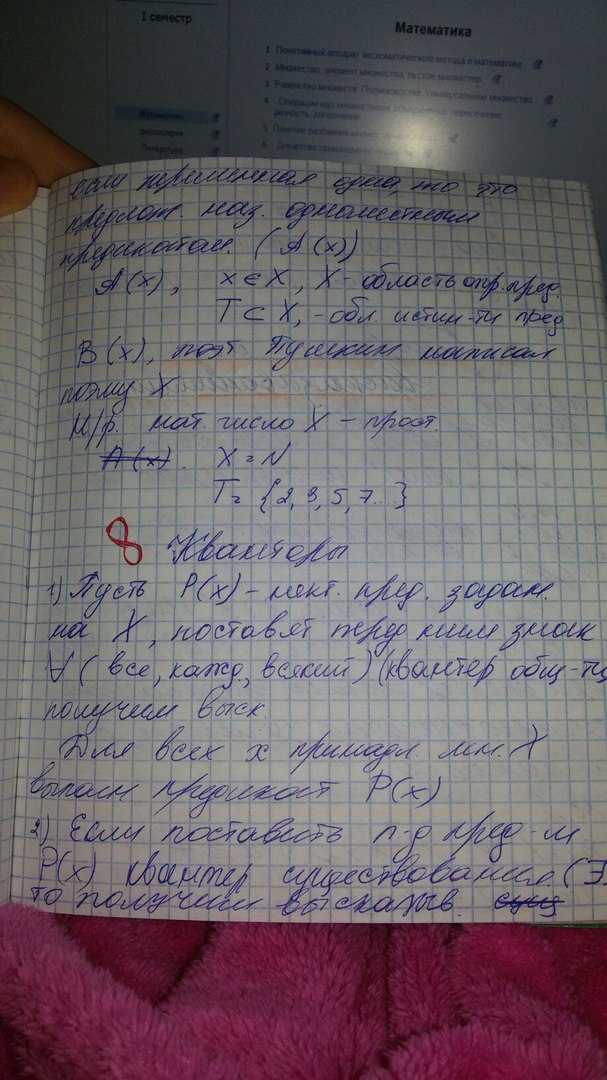 I семестр
Математика
1 Понятийный аппарат аксиоматического метода в математике
2 Множество, элемент множества, пустое множество
3 Равенство множеств. Подмножество. Универсальное множество
4 Операции над множествами: объединение, пересечение,
разность, дополнение.
5 Понятие разбиения множества
6 Декартово произведение
Математика
философия
Литература
если переменная одна, то это
предлож. наз. одноместным
предикатом. (A(x))
A(x), x ∈ X, X - область опр. пред.
T ⊂ X, - обл. истин-ти пред.
B(x), поэт Пушкин написал
поэму X
Н/р. нат. число X - прост.
A(x). X = N
T = {2, 3, 5, 7...}
8 Кванторы
1) Пусть P(x) - некот. пред. задан.
на X, поставят перед ним знак
∀ (все, кажд, всякий) (квантер общ-ти
получим выск.
Для всех x принадл мн. X
выполн. предикат P(x)
2) Если поставить п-д пред-м
P(x) квантер существования. (Э
то получим высказыв.